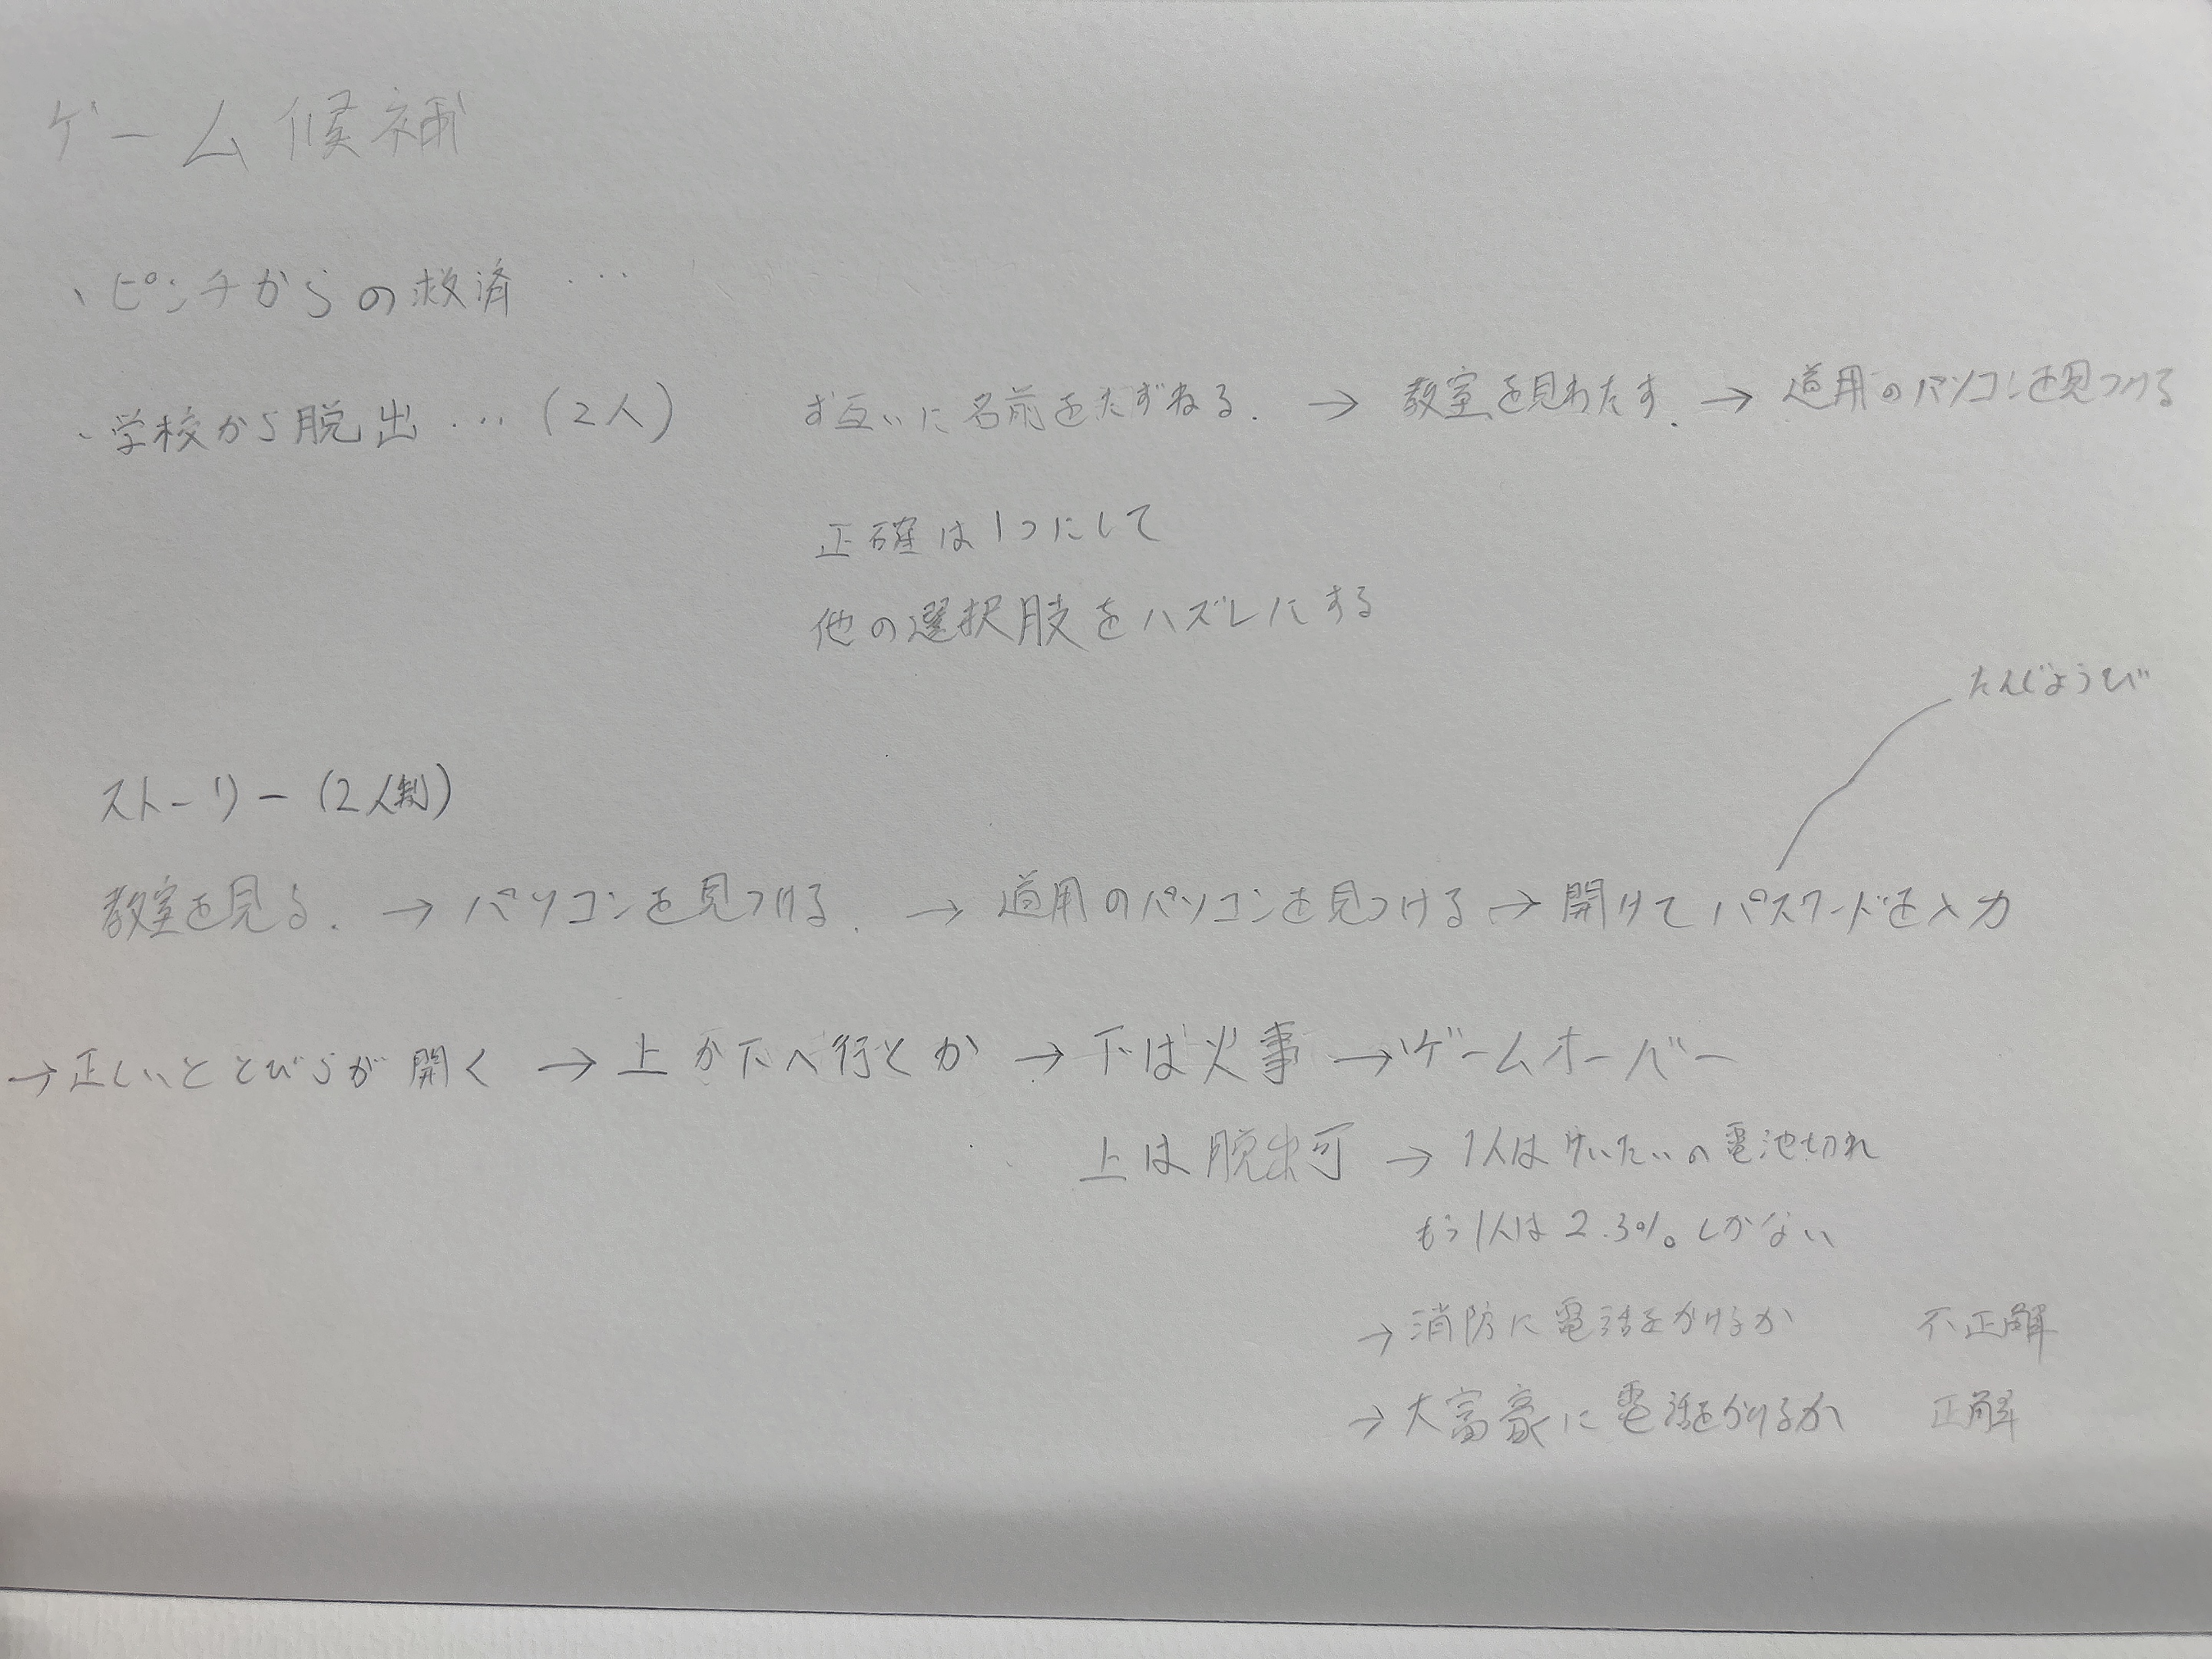 ゲーム候補
・ピンチからの救済 …
・学校から脱出 … (2人) お互いに名前をたずねる. → 教室を見わたす. → 道用のパソコンを見つける
正確は1つにして
他の選択肢をハズレにする
たんじょうび
ストーリー (2人制)
教室を見る. → パソコンを見つける. → 道用のパソコンを見つける → 開けてパスワードを入力
→ 正しいととびらが開く → 上か下へ行くか → 下は火事 → ゲームオーバー
上は脱出可 → 1人はけいたいの電池切れ
もう1人は2.3%しかない
→ 消防に電話をかけるか 不正解
→ 大富豪に電話をかけるか 正解